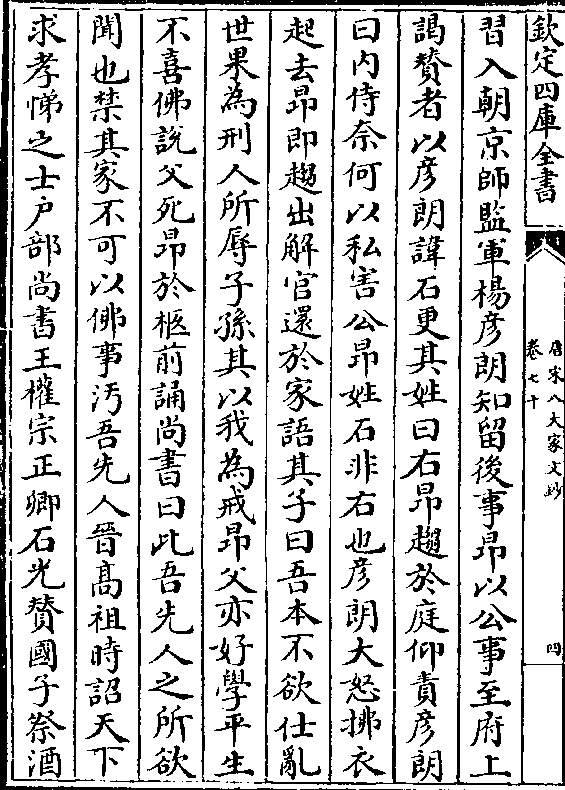 欽定四庫全書
唐宋八大家文鈔
卷七十
四
習入朝京師監軍楊彦朗知留後事昂以公事至府上
謁贊者以彦朗諱石更其姓曰右昂趨於庭仰責彦朗
曰内侍奈何以私害公昂姓石非右也彦朗大怒拂衣
起去昂即趨出解官還於家語其子曰吾本不欲仕亂
世果為刑人所辱子孫其以我為戒昂父亦好學平生
不喜佛說父死昂於柩前誦尚書曰此吾先人之所欲
聞也禁其家不可以佛事汚吾先人晉髙祖時詔天下
求孝悌之士户部尚書王權宗正卿石光贊國子祭酒